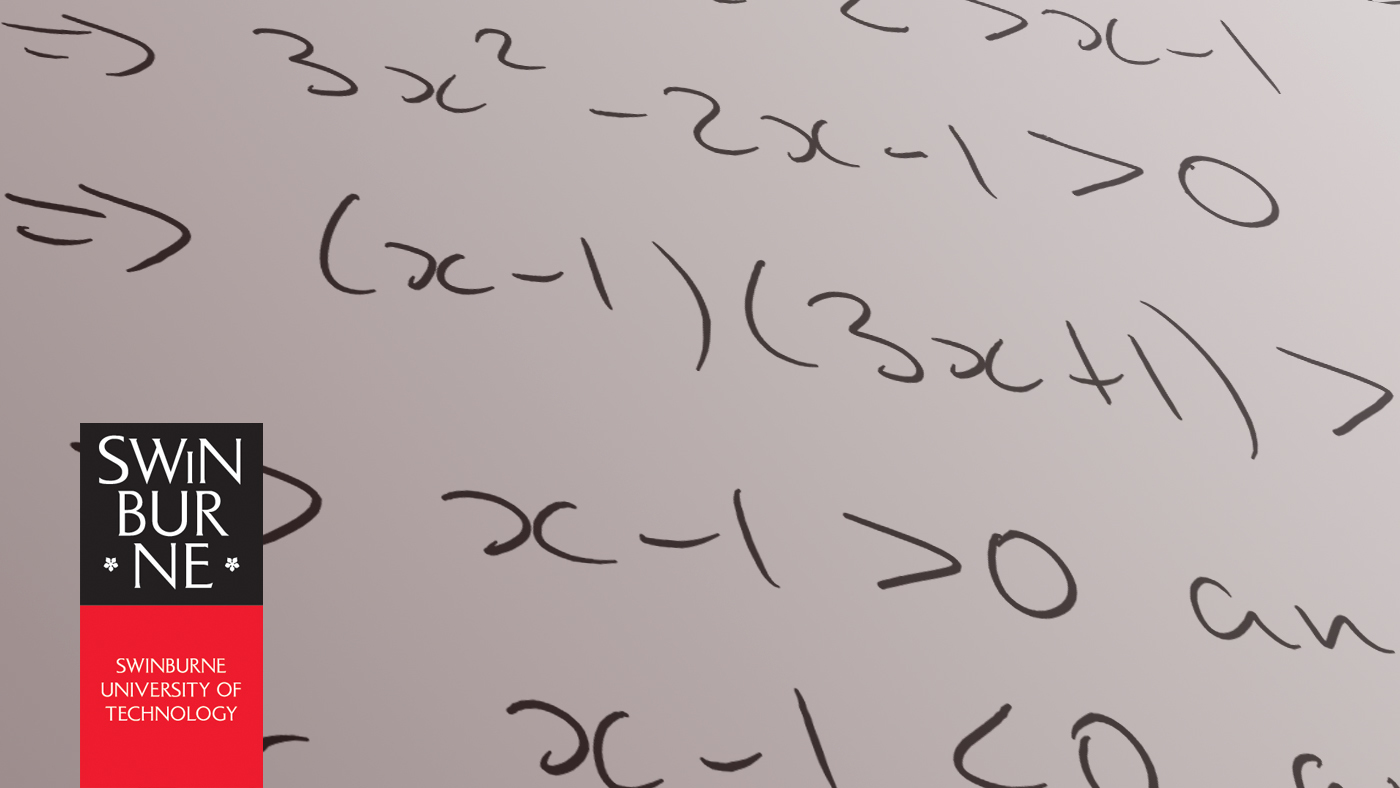 x-1
⇒ 3x² - 2x - 1 > 0
⇒ (x-1)(3x+1) >
x-1 > 0
x-1 < 0
SWINBURNE
SWINBURNE
UNIVERSITY OF
TECHNOLOGY